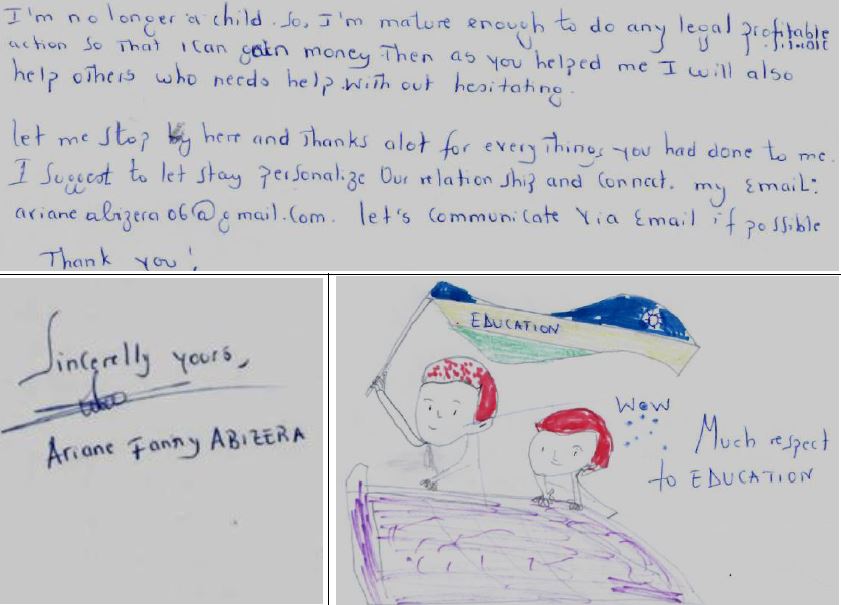 I'm no longer a child. So, I'm mature enough to do any legal profitable
action so that I can gain money Then as you helped me I will also
help others who needs help. With out hesitating.
let me stop by here and Thanks alot for every Things you had done to me.
I Suggest to let stay personalize Our relation ship and Connect. my Email:
ariane abizera 06@gmail.Com. let's Communicate Via Email if possible
Thank you!
Sincerelly yours,
Ariane Fanny ABIZERA
EDUCATION
WoW
Much respect
to EDUCATION